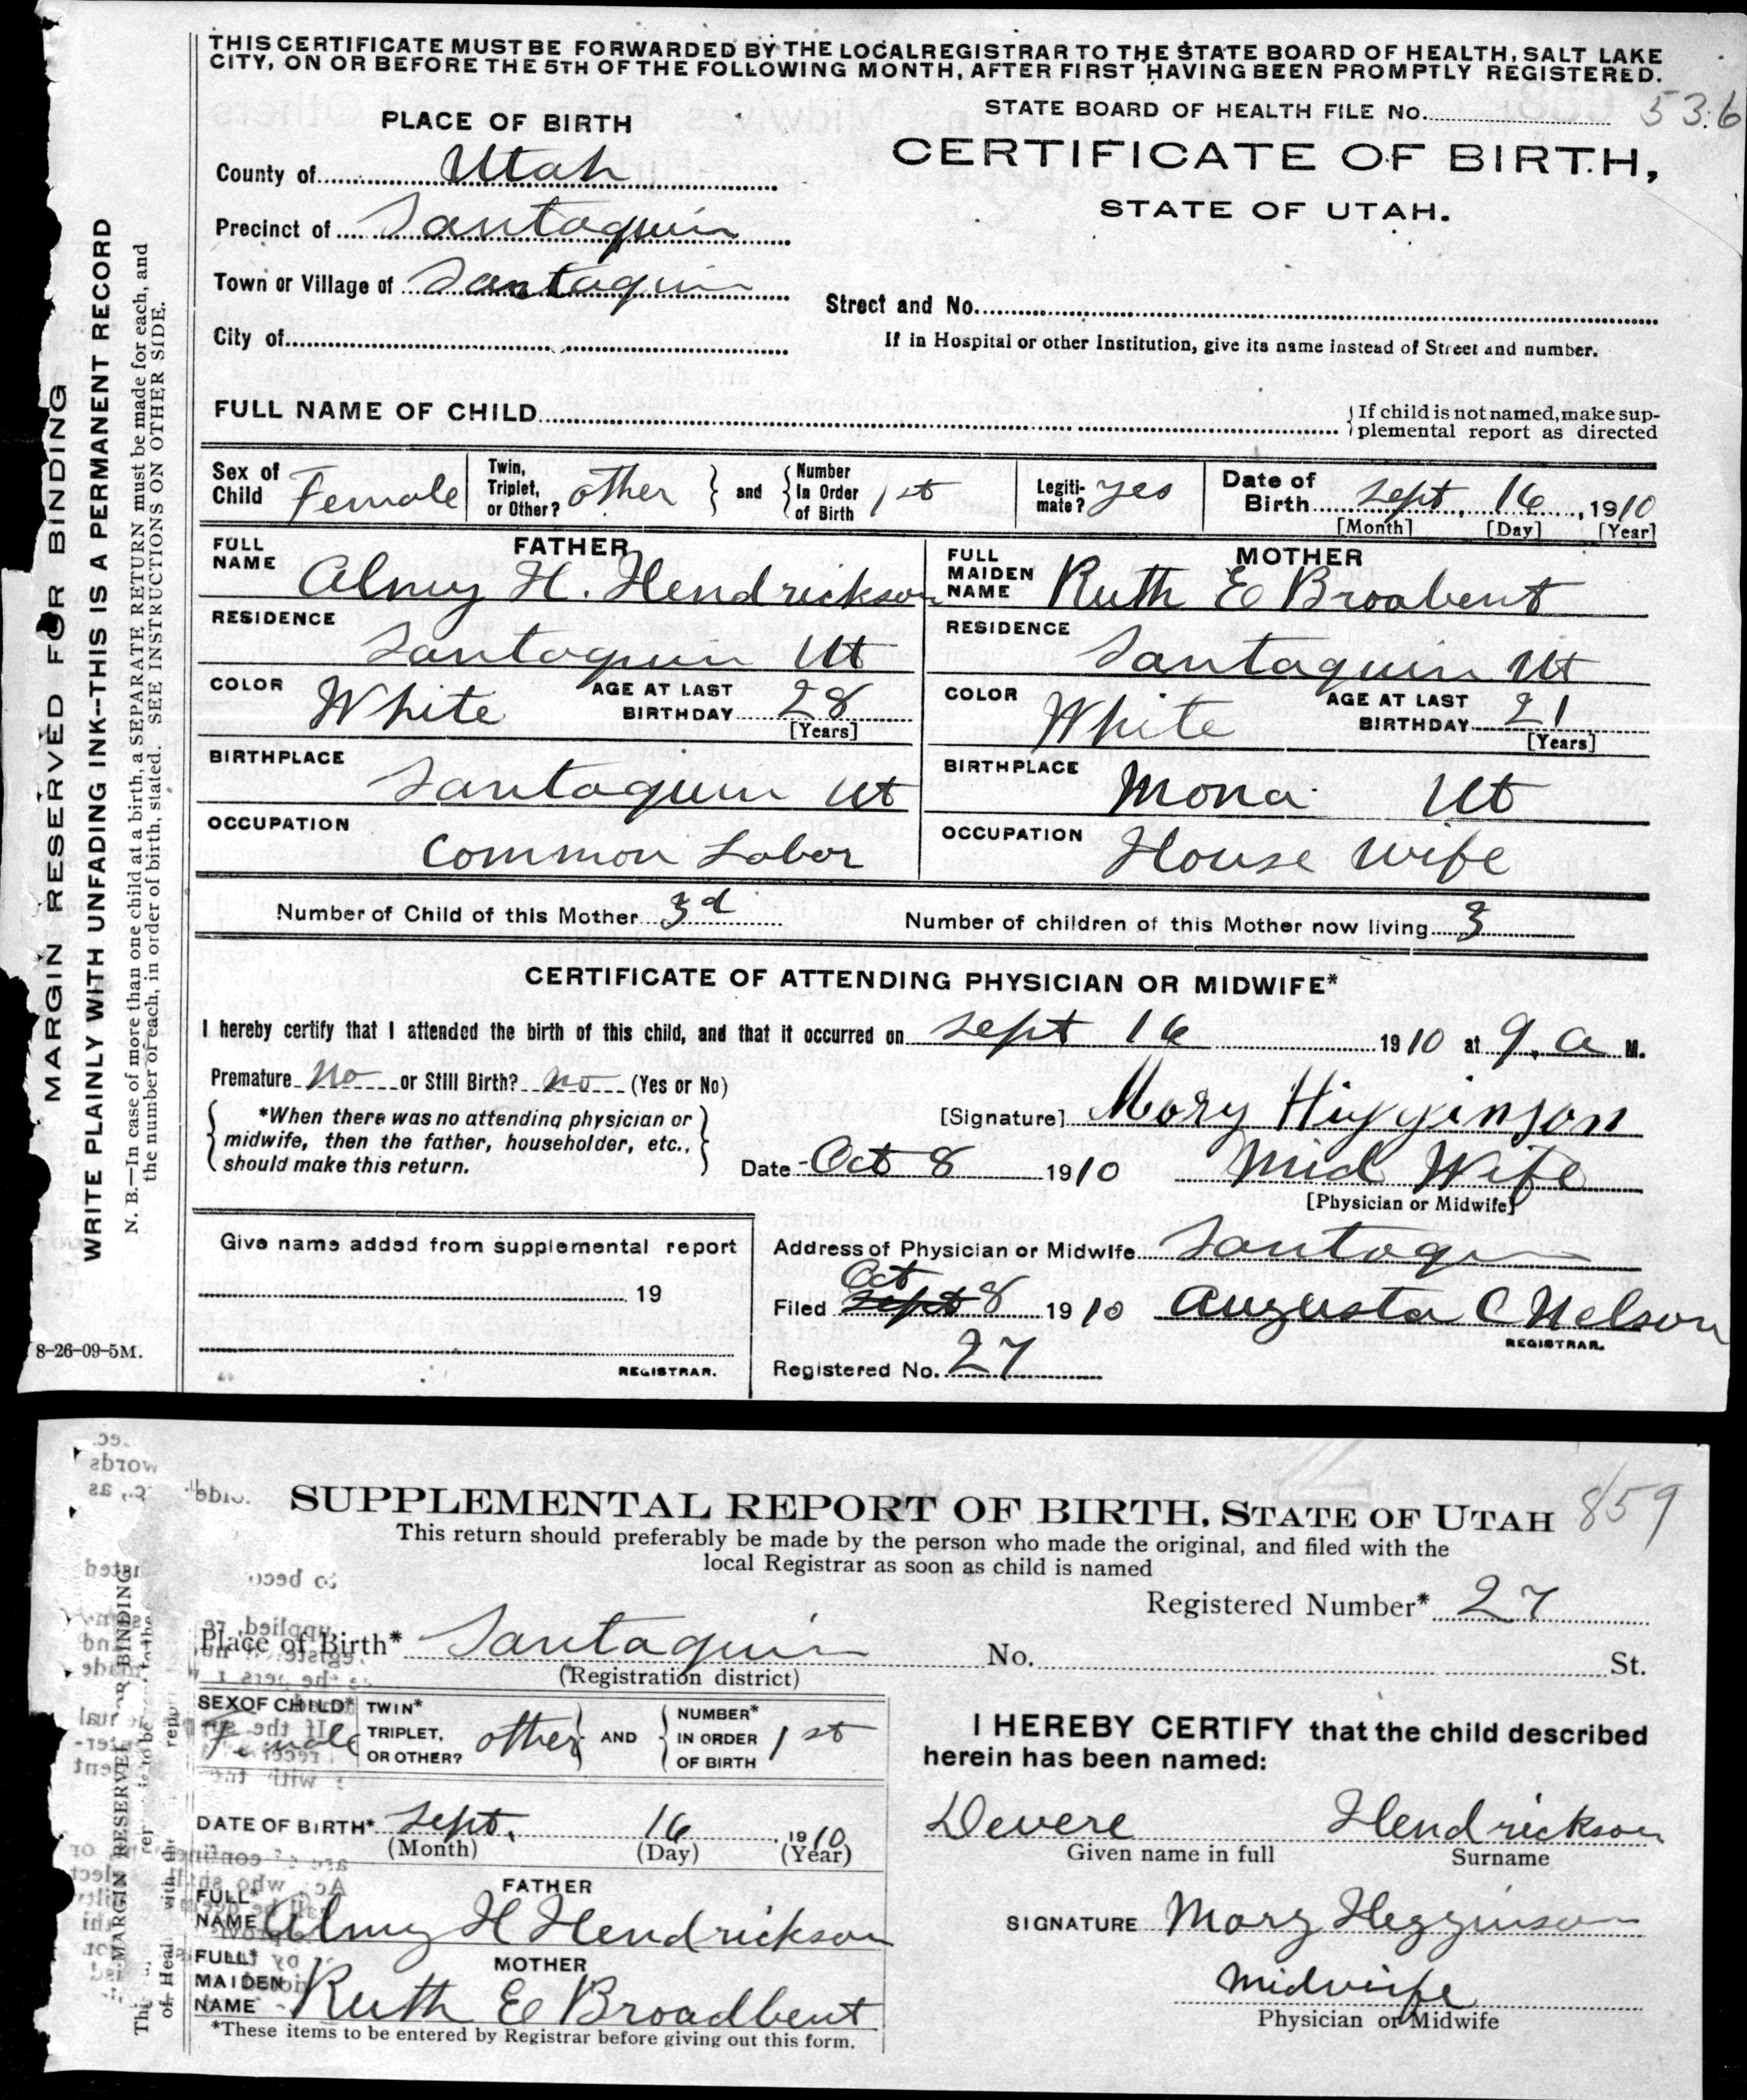 THIS CERTIFICATE MUST BE FORWARDED BY THE LOCAL REGISTRAR TO THE STATE BOARD OF HEALTH, SALT LAKE
CITY, ON OR BEFORE THE 5TH OF THE FOLLOWING MONTH, AFTER FIRST HAVING BEEN PROMPTLY REGISTERED.
STATE BOARD OF HEALTH FILE No. 536
PLACE OF BIRTH
CERTIFICATE OF BIRTH,
STATE OF UTAH.
County of Utah
Precinct of Santaquin
Town or Village of Santaquin
Street and No.
City of
If in Hospital or other Institution, give its name instead of Street and number.
FULL NAME OF CHILD
{If child is not named, make sup-
plemental report as directed
Sex of Child Female
Twin, Triplet, or Other? other } and { Number In Order of Birth 1st
Legiti-mate? yes
Date of Birth Sept. 16, 1910
[Month] [Day] [Year]
FATHER
FULL NAME Almy H. Hendrickson
RESIDENCE
Santaquin Ut
COLOR White AGE AT LAST BIRTHDAY 28
[Years]
BIRTHPLACE
Santaquin Ut
OCCUPATION
Common Labor
MOTHER
FULL MAIDEN NAME Ruth E Broabent
RESIDENCE
Santaquin Ut
COLOR White AGE AT LAST BIRTHDAY 21
[Years]
BIRTHPLACE
Mona Ut
OCCUPATION
House Wife
Number of Child of this Mother 3d
Number of children of this Mother now living 3
CERTIFICATE OF ATTENDING PHYSICIAN OR MIDWIFE*
I hereby certify that I attended the birth of this child, and that it occurred on Sept 16 1910 at 9. a M.
Premature No or Still Birth? no (Yes or No)
{ *When there was no attending physician or
midwife, then the father, householder, etc.,
should make this return. }
[Signature] Mary Higginson
Date Oct 8 1910 Mid Wife
[Physician or Midwife]
Give name added from supplemental report
19
REGISTRAR.
Address of Physician or Midwife Santaqn
Oct
Filed Sept 8 1910 Augusta C Nelson
REGISTRAR.
Registered No. 27
MARGIN RESERVED FOR BINDING
WRITE PLAINLY WITH UNFADING INK--THIS IS A PERMANENT RECORD
N. B.—In case of more than one child at a birth, a SEPARATE RETURN must be made for each, and
the number of each, in order of birth, stated. SEE INSTRUCTIONS ON OTHER SIDE.
8-26-09-5M.
SUPPLEMENTAL REPORT OF BIRTH. STATE OF UTAH 859
This return should preferably be made by the person who made the original, and filed with the
local Registrar as soon as child is named
Registered Number* 27
Place of Birth* Santaquin No. St.
(Registration district)
SEX OF CHILD* Female
TWIN* TRIPLET, OR OTHER? other } AND { NUMBER* IN ORDER OF BIRTH 1st
DATE OF BIRTH* Sept. 16 1910
(Month) (Day) (Year)
FATHER
FULL* NAME Almy H Hendrickson
MOTHER
FULL* MAIDEN NAME Ruth E Broadbent
*These items to be entered by Registrar before giving out this form.
I HEREBY CERTIFY that the child described
herein has been named:
Devere Hendrickson
Given name in full Surname
SIGNATURE Mary Hegginson
Midwife
Physician or Midwife
MARGIN RESERVED FOR BINDING